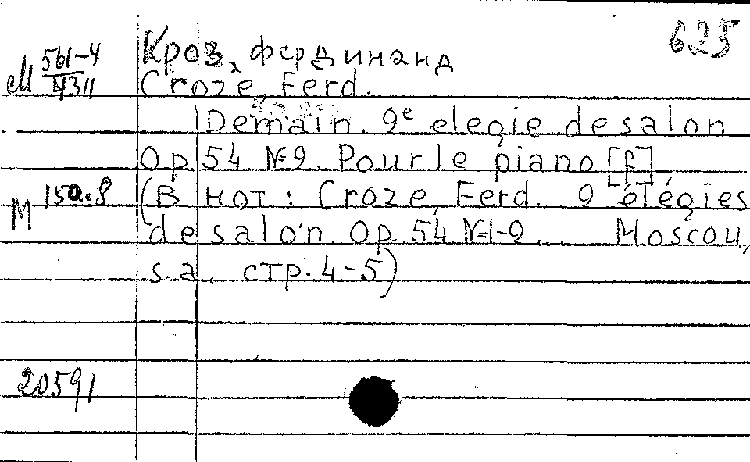 625
М 561-4/4311
Кроз, Фердинанд
Croze, Ferd.
Demain. 2e elegie de salon
Op. 54 №2. Pour le piano [f]
М 150.8
(В нот: Croze, Ferd. 2 élégies
de salon. Op. 54 №1-2. Moscou,
s.a. стр. 4-5)
20591